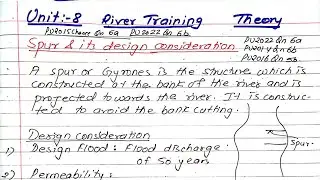 Unit:-8 River Training Theory
PU2015 Chance Qn 6a PU2022 Qn 6b
PU2022 Qn 6a
Spur & its design consideration
PU2014 Qn 6b
PU2016 Qn 5b
A spur or Gyrones is the structure which is
constructed at the bank of the river and is
projected towards the river. It is construc-
ted to avoid the bank cutting.
Design consideration
1) Design Flood: Flood discharge
of 50 years
Spur
2) Permeability: